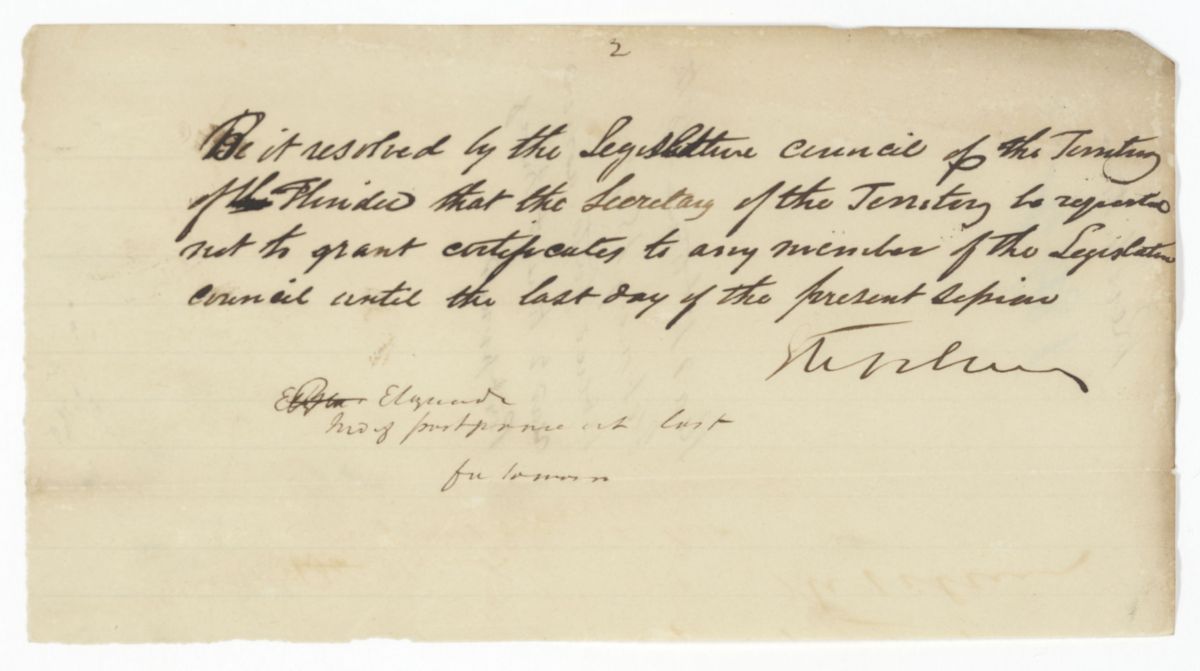 2
Be it resolved by the Legislature council of the Territory
of Florida that the Secretary of the Territory be requested
not to grant certificates to any member of the Legislative
council until the last day of the present session
postpone lost
for tomorrow